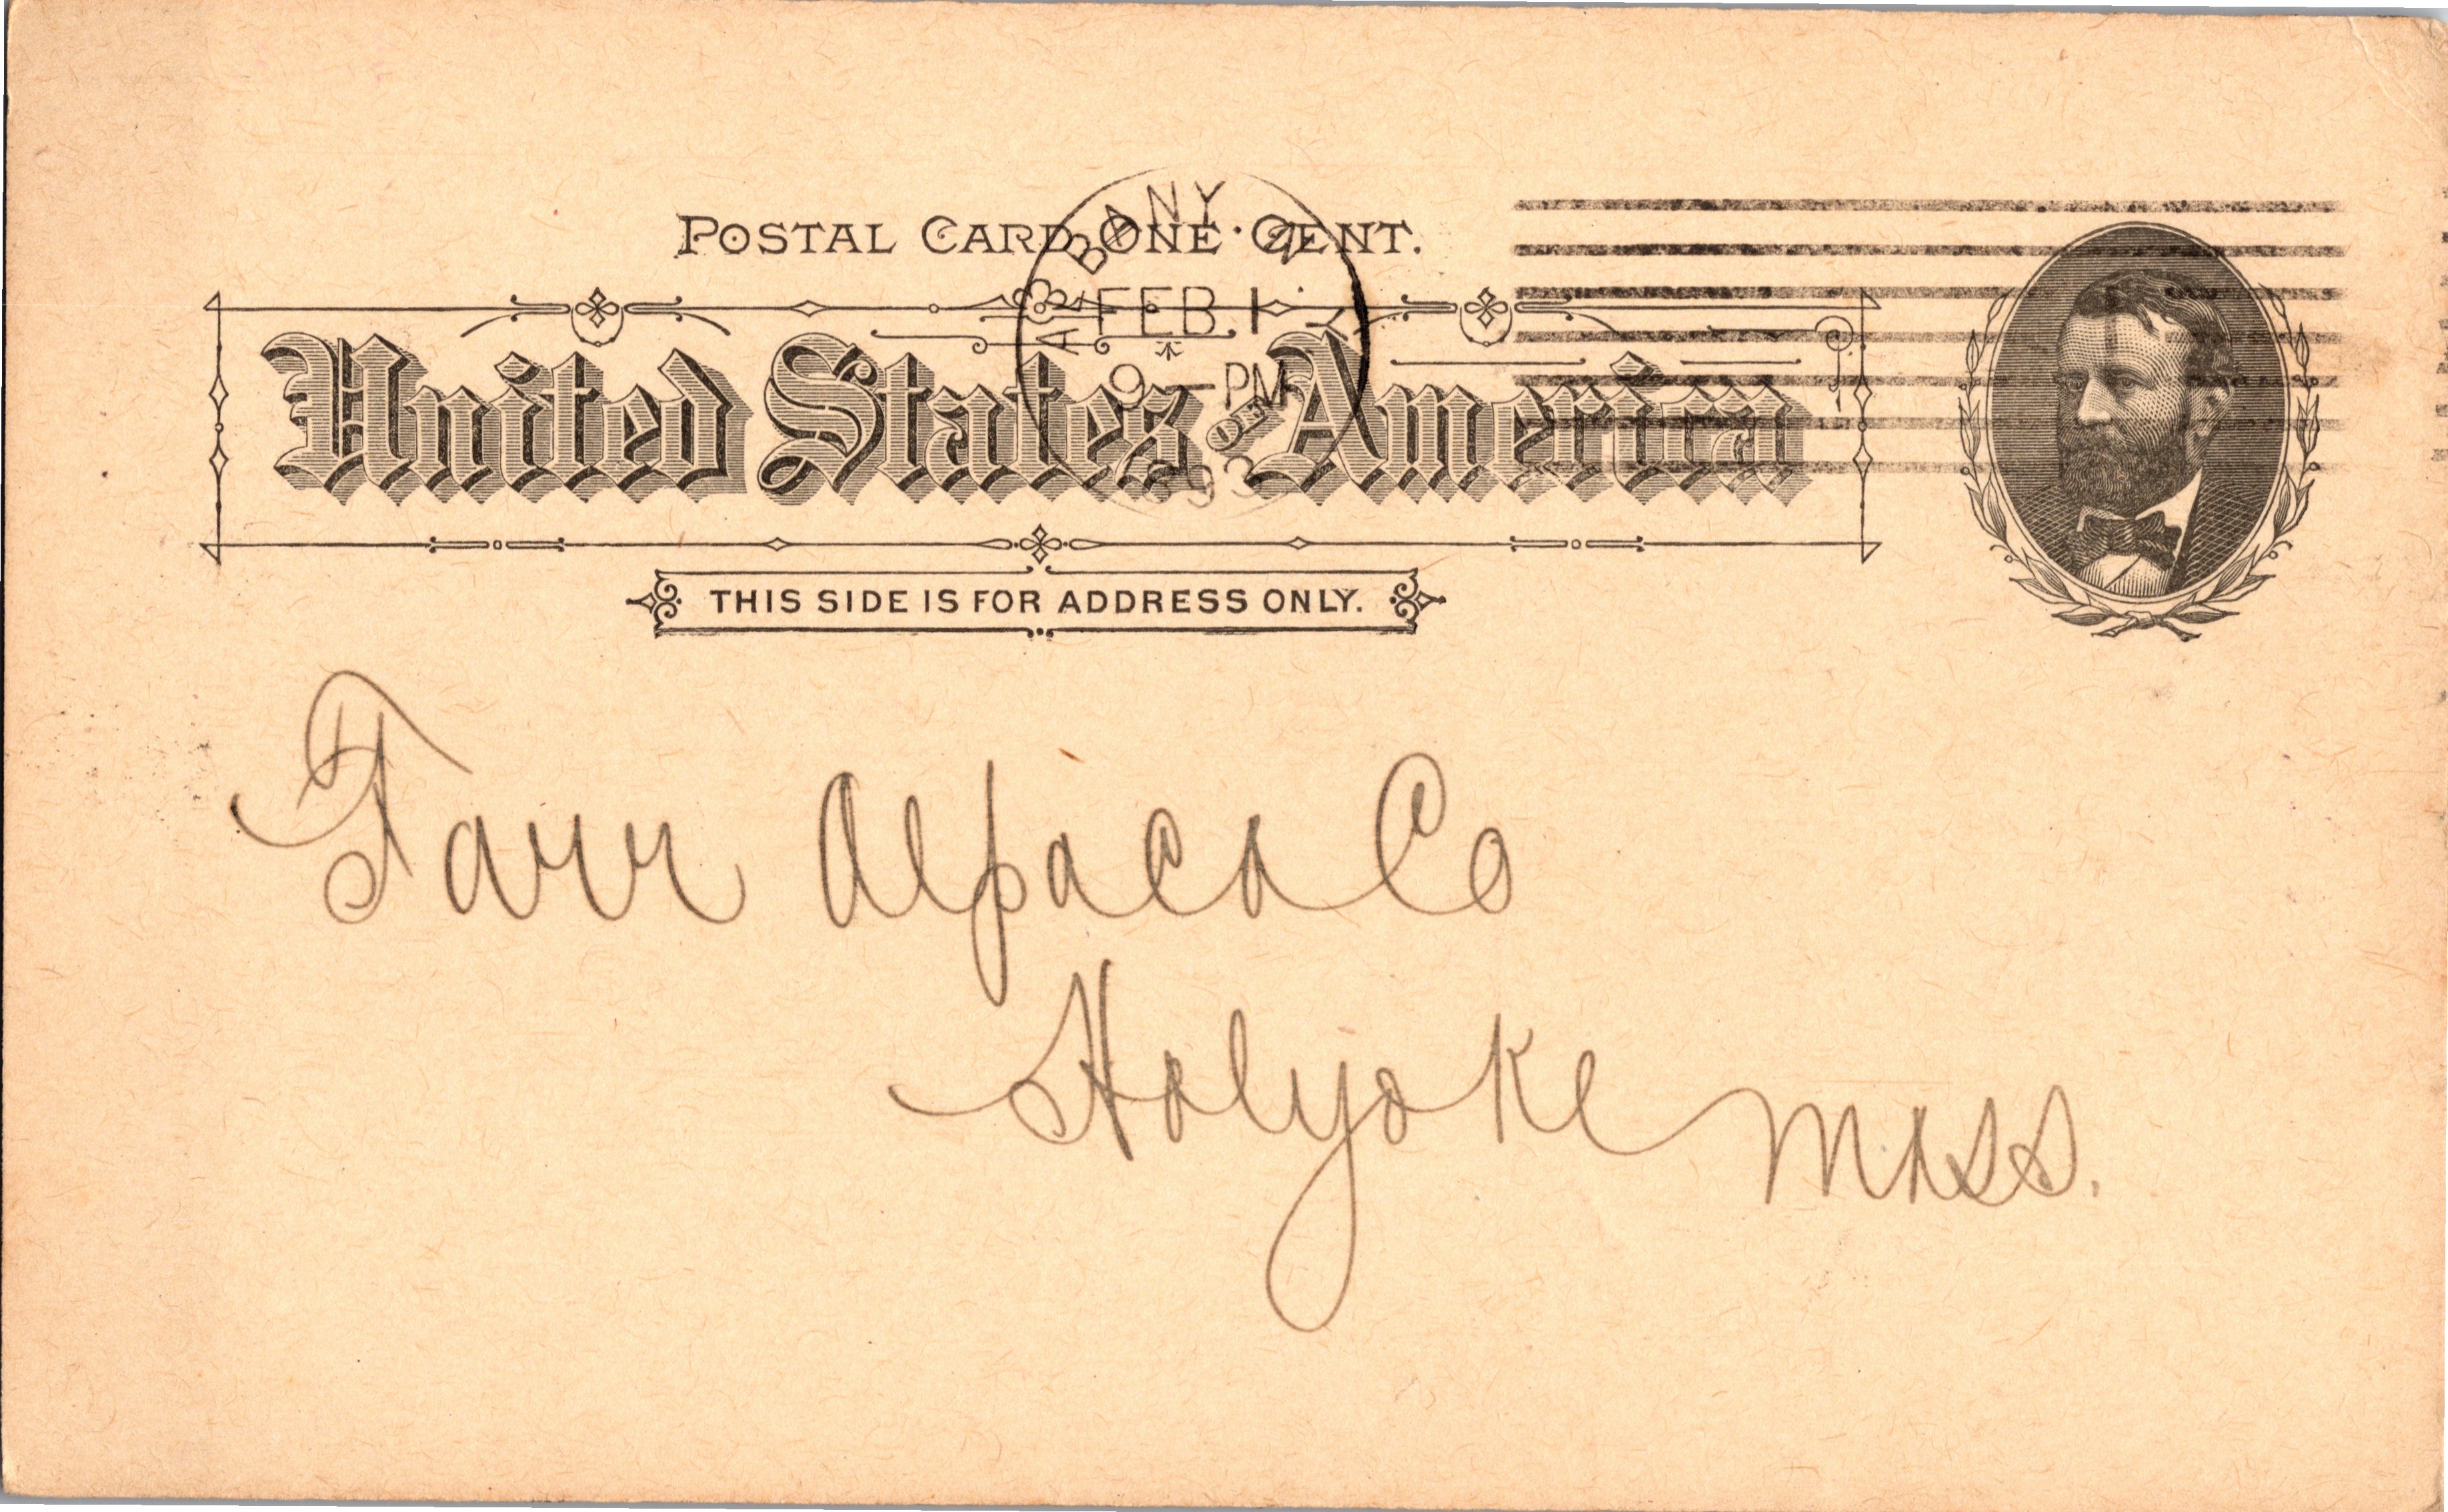 POSTAL CARD ONE CENT.
ALBANY · N.Y.
FEB 1
9 — PM
1893
United States OF America
THIS SIDE IS FOR ADDRESS ONLY.
Farr Alpaca Co
Holyoke Mass.